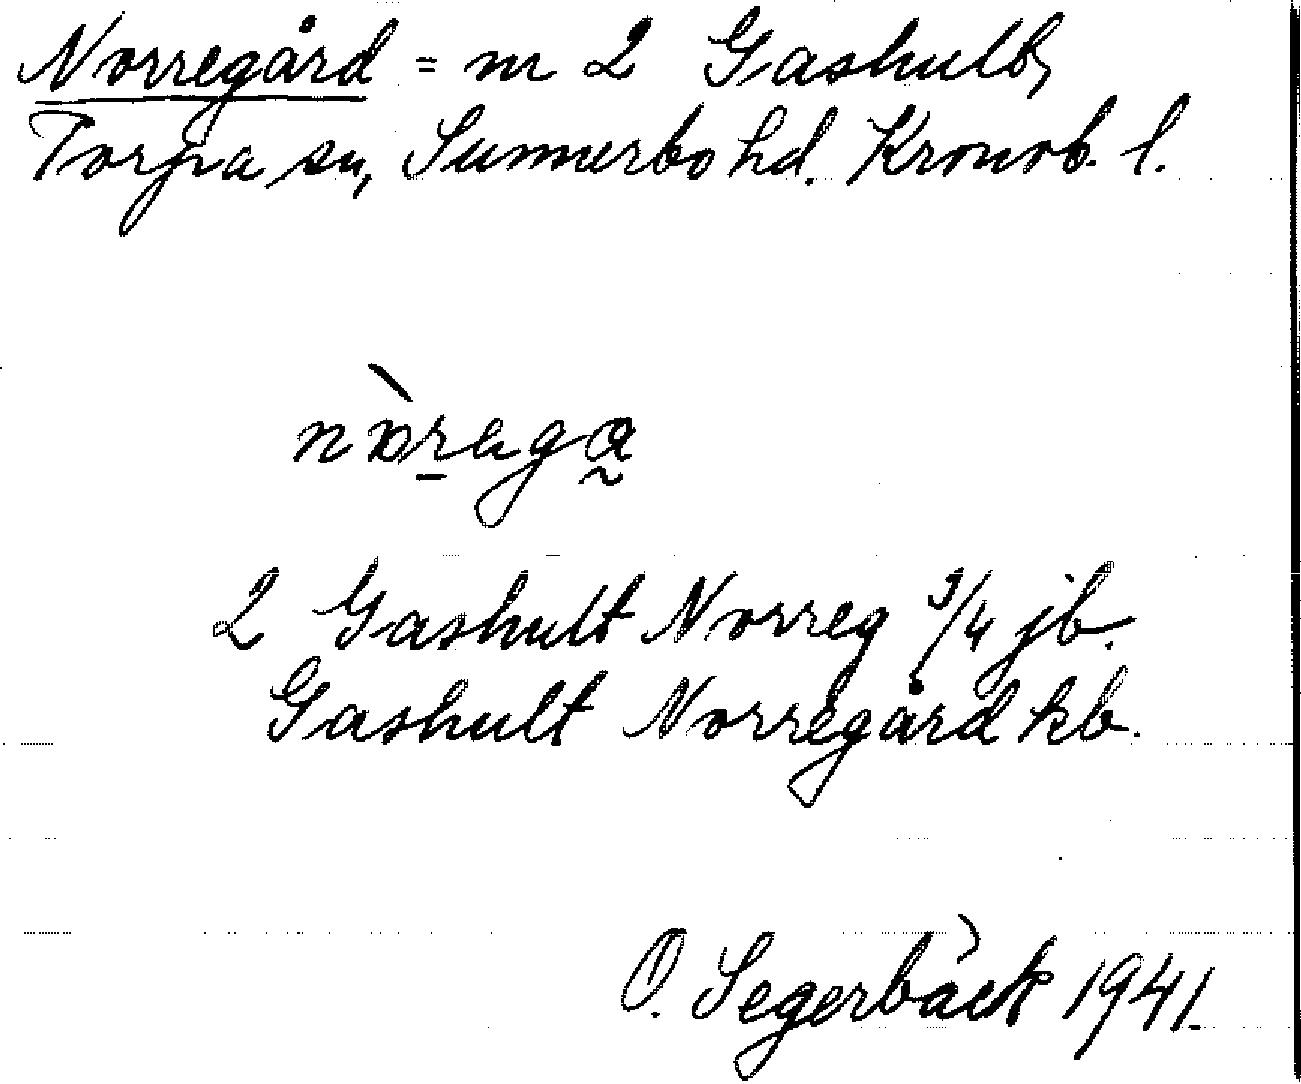 Norregård = nr 2 Gashult,
Torpa sn, Sunnerbo hd. Kronob. l.
2 Gashult Norreg 3/4 jb.
Gashult Norregård kb.
O. Segerbäck 1941.